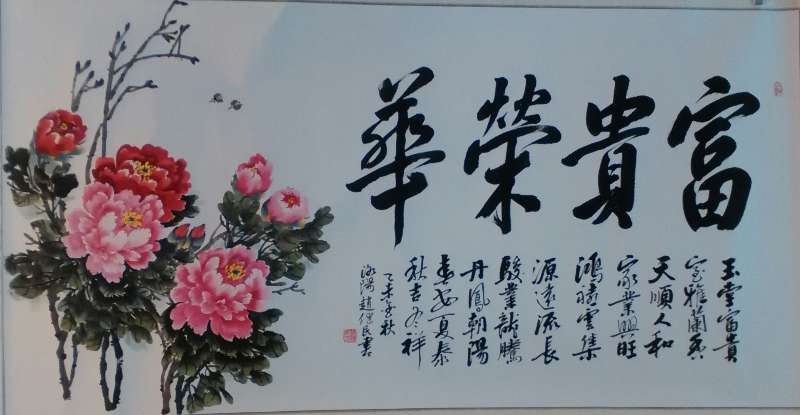 富貴榮華
玉堂富貴
室雅蘭香
天順人和
家業興旺
鴻禧雲集
源遠流長
駿業龍騰
丹鳳朝陽
春安夏泰
秋吉冬祥
乙未年秋
洛陽趙民書